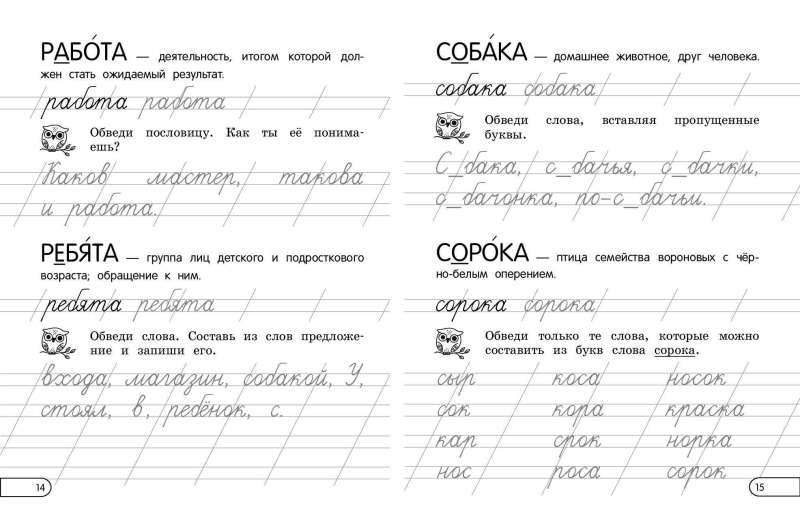 РАБО́ТА — деятельность, итогом которой дол-
жен стать ожидаемый результат.
работа работа
Обведи пословицу. Как ты её понима-
ешь?
Каков мастер, такова
и работа.
РЕБЯ́ТА — группа лиц детского и подросткового
возраста; обращение к ним.
ребята ребята
Обведи слова. Составь из слов предложе-
ние и запиши его.
входа, магазин, собакой, У,
стоял, в, ребёнок, с.
14
СОБА́КА — домашнее животное, друг человека.
собака собака
Обведи слова, вставляя пропущенные
буквы.
С_бака, с_бачья, с_бачки,
с_бачонка, по-с_бачьи.
СОРО́КА — птица семейства вороновых с чёр-
но-белым оперением.
сорока сорока
Обведи только те слова, которые можно
составить из букв слова сорока.
сыр коса носок
сок кора краска
кар срок норка
нос роса сорок
15